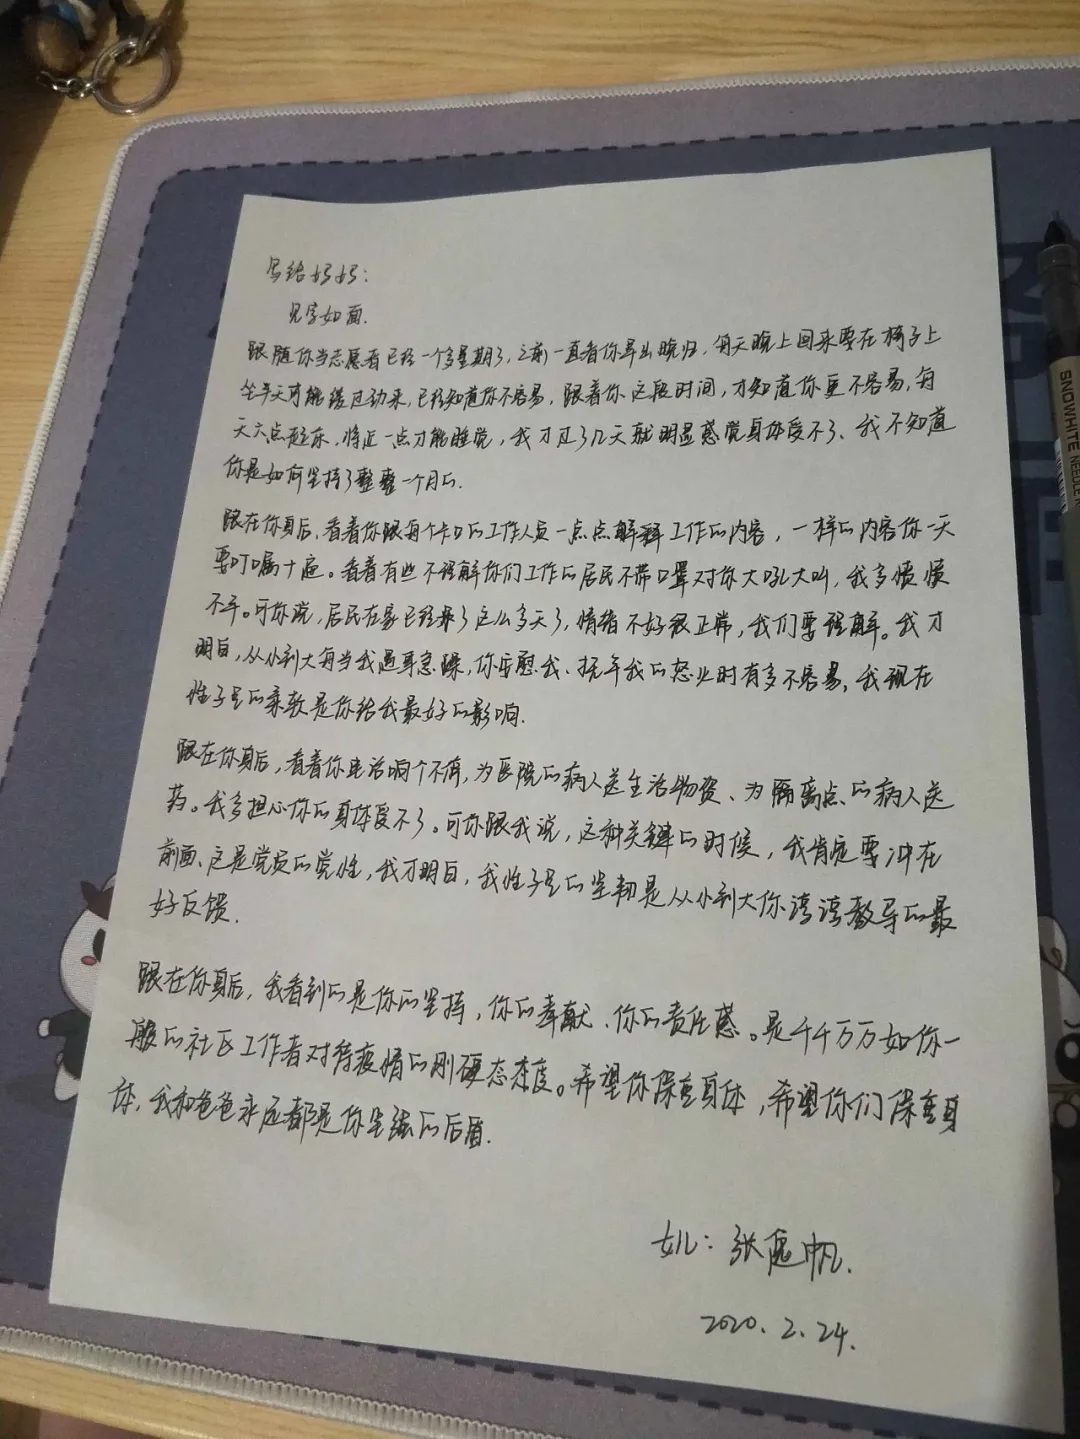 写给妈妈:
见字如面.
跟随你当志愿者已经一个多星期了,之前一直看你早出晚归,每天晚上回来要在椅子上
坐半天才能缓过劲来,已经知道你不容易,跟着你这段时间,才知道你更不容易,每
天六点起床,将近一点才能睡觉,我才过了几天就明显感觉身体受不了、我不知道
你是如何坚持了整整一个月的.
跟在你身后,看着你跟每个卡口的工作人员一点点解释工作的内容,一样的内容你一天
要叮嘱十遍。看着有些不理解你们工作的居民不带口罩对你大吼大叫,我多愤愤
不平。可你说,居民在家已经呆了这么多天了,情绪不好很正常,我们要理解。我才
明白,从小到大每当我遇事急躁,你安慰我、抚平我的怒火时有多不容易,我现在
性子里的柔软是你给我最好的影响.
跟在你身后,看着你电话响个不停,为医院的病人送生活物资、为隔离点的病人送
药。我多担心你的身体受不了。可你跟我说,这种关键的时候,我肯定要冲在
前面、这是党员的党性,我才明白,我性子里的坚韧是从小到大你谆谆教导的最
好反馈.
跟在你身后,我看到的是你的坚持,你的奉献、你的责任感。是千千万万如你一
般的社区工作者对待疫情的刚硬态度。希望你保重身体,希望你们保重身
体,我和爸爸永远都是你坚强的后盾.
女儿:张 帆.
2020.2.24.
SNOWHITE NEEDLE